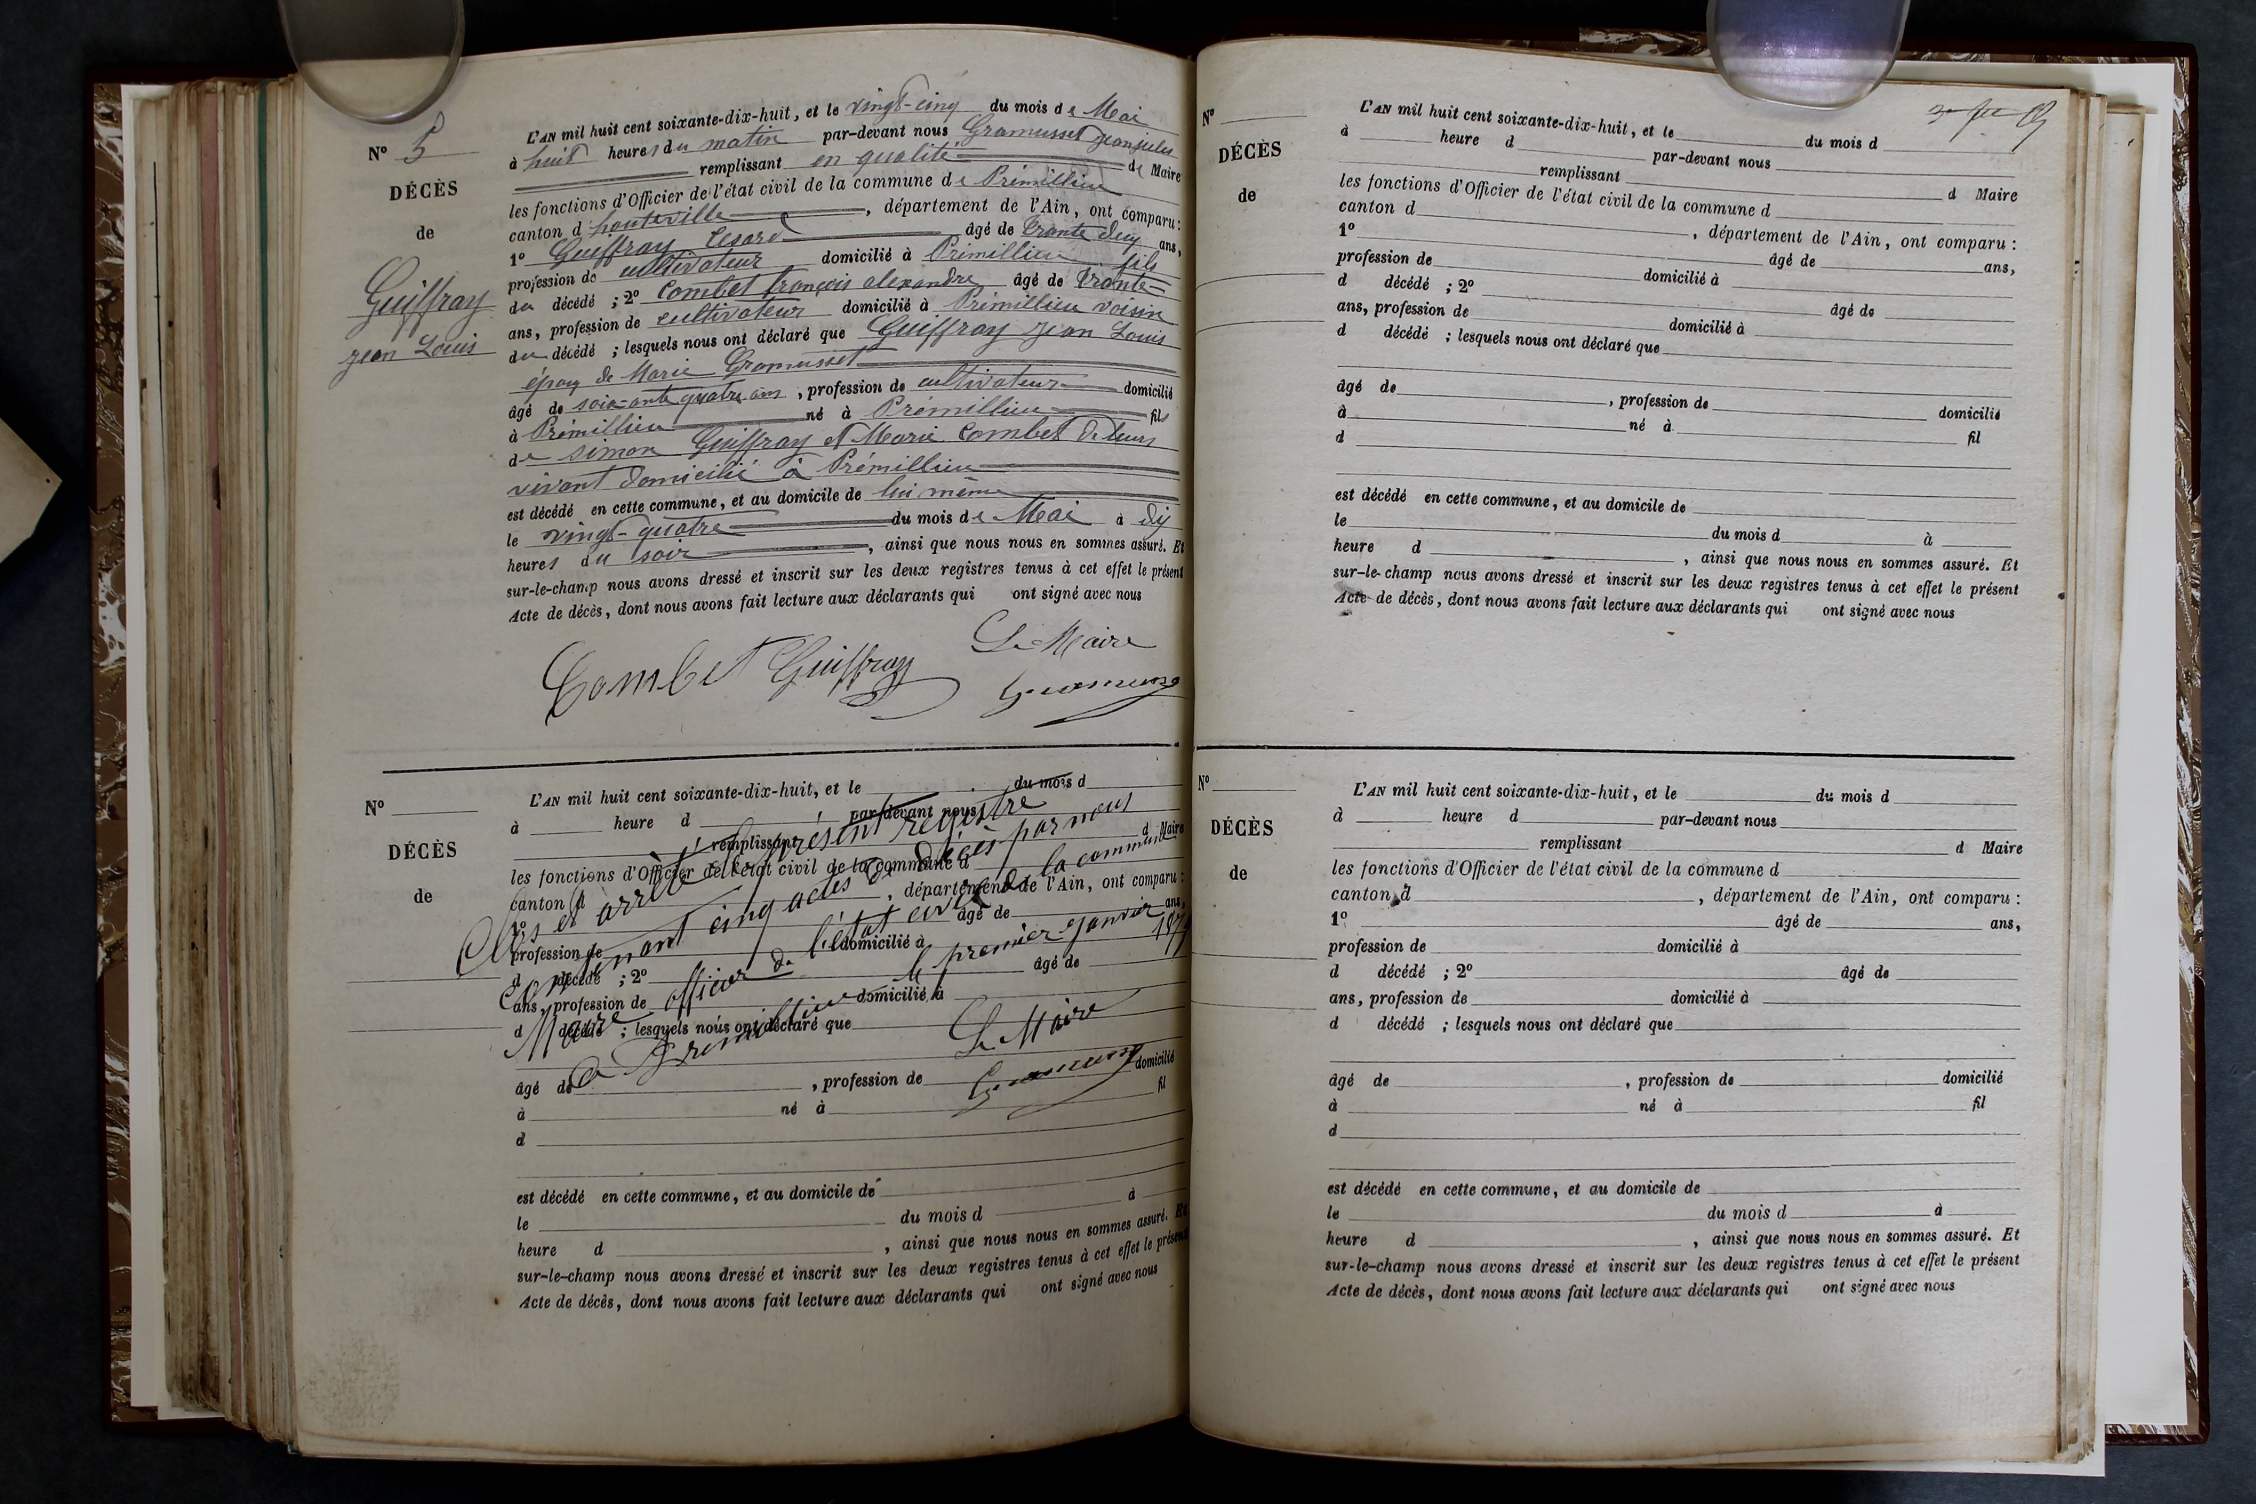 N° 5
DÉCÈS
de
Guiffray
jean Louis
L'AN mil huit cent soixante-dix-huit, et le vingt-cinq du mois de Mai
à huit heures du matin par-devant nous Gramusset jean jules
remplissant en qualité de Maire
les fonctions d'Officier de l'état civil de la commune de Prémillieu
canton d hauteville, département de l'Ain, ont comparu :
1° Guiffray Cesard âgé de trante deux ans,
profession de cultivateur domicilié à Prémillieu fils
du décédé ; 2° Combet françois alexandre âgé de trante
ans, profession de cultivateur domicilié à Prémillieu voisin
du décédé ; lesquels nous ont déclaré que Guiffray jean Louis
époux de Marie Gramusset
âgé de soixante quatre ans, profession de cultivateur domicilié
à Prémillieu né à Prémillieu fils
de simon Guiffray et Marie Combet de leurs
vivant domicilié à Prémillieu
est décédé en cette commune, et au domicile de lui même
le vingt-quatre du mois de Mai à dix
heures du soir, ainsi que nous nous en sommes assuré. Et
sur-le-champ nous avons dressé et inscrit sur les deux registres tenus à cet effet le présent
Acte de décès, dont nous avons fait lecture aux déclarants qui ont signé avec nous
Le Maire
Combet Guiffray Gramusset
N°
DÉCÈS
de
L'AN mil huit cent soixante-dix-huit, et le du mois d
à heure d par-devant nous
remplissant d Maire
les fonctions d'Officier de l'état civil de la commune d
canton d , département de l'Ain, ont comparu :
1° âgé de ans,
profession de domicilié à
d décédé ; 2° âgé de
ans, profession de domicilié à
d décédé ; lesquels nous ont déclaré que
âgé de , profession de domicilié
à né à fil
d
est décédé en cette commune, et au domicile de
le du mois d à
heure d , ainsi que nous nous en sommes assuré. Et
sur-le-champ nous avons dressé et inscrit sur les deux registres tenus à cet effet le présent
Acte de décès, dont nous avons fait lecture aux déclarants qui ont signé avec nous
Clos et arrêté le présent registre
Contenant cinq actes de décès par nous
Maire officier de l'état civil de la commune
à Prémillieu le premier janvier 1879
Le Maire
Gramusset
N°
DÉCÈS
de
L'AN mil huit cent soixante-dix-huit, et le du mois d
à heure d par-devant nous
remplissant d Maire
les fonctions d'Officier de l'état civil de la commune d
canton d , département de l'Ain, ont comparu :
1° âgé de ans,
profession de domicilié à
d décédé ; 2° âgé de
ans, profession de domicilié à
d décédé ; lesquels nous ont déclaré que
âgé de , profession de domicilié
à né à fil
d
est décédé en cette commune, et au domicile de
le du mois d à
heure d , ainsi que nous nous en sommes assuré. Et
sur-le-champ nous avons dressé et inscrit sur les deux registres tenus à cet effet le présent
Acte de décès, dont nous avons fait lecture aux déclarants qui ont signé avec nous
N°
DÉCÈS
de
L'AN mil huit cent soixante-dix-huit, et le du mois d
à heure d par-devant nous
remplissant d Maire
les fonctions d'Officier de l'état civil de la commune d
canton d , département de l'Ain, ont comparu :
1° âgé de ans,
profession de domicilié à
d décédé ; 2° âgé de
ans, profession de domicilié à
d décédé ; lesquels nous ont déclaré que
âgé de , profession de domicilié
à né à fil
d
est décédé en cette commune, et au domicile de
le du mois d à
heure d , ainsi que nous nous en sommes assuré. Et
sur-le-champ nous avons dressé et inscrit sur les deux registres tenus à cet effet le présent
Acte de décès, dont nous avons fait lecture aux déclarants qui ont signé avec nous